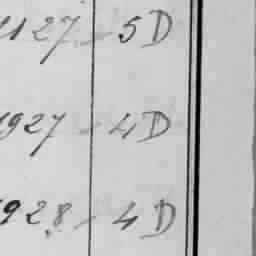 1127 - 5 D
1927 - 4 D
1928 - 4 D